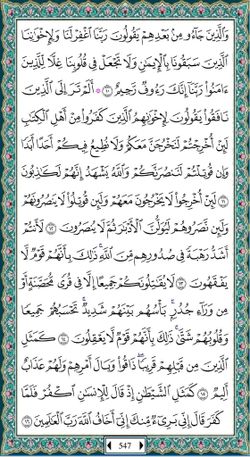 وَالَّذِينَ جَاءُو مِنْ بَعْدِهِمْ يَقُولُونَ رَبَّنَا اغْفِرْ لَنَا وَلِإِخْوَانِنَا
الَّذِينَ سَبَقُونَا بِالْإِيمَانِ وَلَا تَجْعَلْ فِي قُلُوبِنَا غِلًّا لِلَّذِينَ
ءَامَنُوا رَبَّنَا إِنَّكَ رَءُوفٌ رَحِيمٌ ١٠ أَلَمْ تَرَ إِلَى الَّذِينَ
نَافَقُوا يَقُولُونَ لِإِخْوَانِهِمُ الَّذِينَ كَفَرُوا مِنْ أَهْلِ الْكِتَابِ
لَئِنْ أُخْرِجْتُمْ لَنَخْرُجَنَّ مَعَكُمْ وَلَا نُطِيعُ فِيكُمْ أَحَدًا أَبَدًا
وَإِنْ قُوتِلْتُمْ لَنَنْصُرَنَّكُمْ وَاللَّهُ يَشْهَدُ إِنَّهُمْ لَكَاذِبُونَ
١١ لَئِنْ أُخْرِجُوا لَا يَخْرُجُونَ مَعَهُمْ وَلَئِنْ قُوتِلُوا لَا يَنْصُرُونَهُمْ
وَلَئِنْ نَصَرُوهُمْ لَيُوَلُّنَّ الْأَدْبَارَ ثُمَّ لَا يُنْصَرُونَ ١٢ لَأَنْتُمْ
أَشَدُّ رَهْبَةً فِي صُدُورِهِمْ مِنَ اللَّهِ ذَلِكَ بِأَنَّهُمْ قَوْمٌ لَا
يَفْقَهُونَ ١٣ لَا يُقَاتِلُونَكُمْ جَمِيعًا إِلَّا فِي قُرًى مُحَصَّنَةٍ أَوْ
مِنْ وَرَاءِ جُدُرٍ بَأْسُهُمْ بَيْنَهُمْ شَدِيدٌ تَحْسَبُهُمْ جَمِيعًا
وَقُلُوبُهُمْ شَتَّى ذَلِكَ بِأَنَّهُمْ قَوْمٌ لَا يَعْقِلُونَ ١٤ كَمَثَلِ
الَّذِينَ مِنْ قَبْلِهِمْ قَرِيبًا ذَاقُوا وَبَالَ أَمْرِهِمْ وَلَهُمْ عَذَابٌ
أَلِيمٌ ١٥ كَمَثَلِ الشَّيْطَانِ إِذْ قَالَ لِلْإِنْسَانِ اكْفُرْ فَلَمَّا
كَفَرَ قَالَ إِنِّي بَرِيءٌ مِنْكَ إِنِّي أَخَافُ اللَّهَ رَبَّ الْعَالَمِينَ ١٦
547